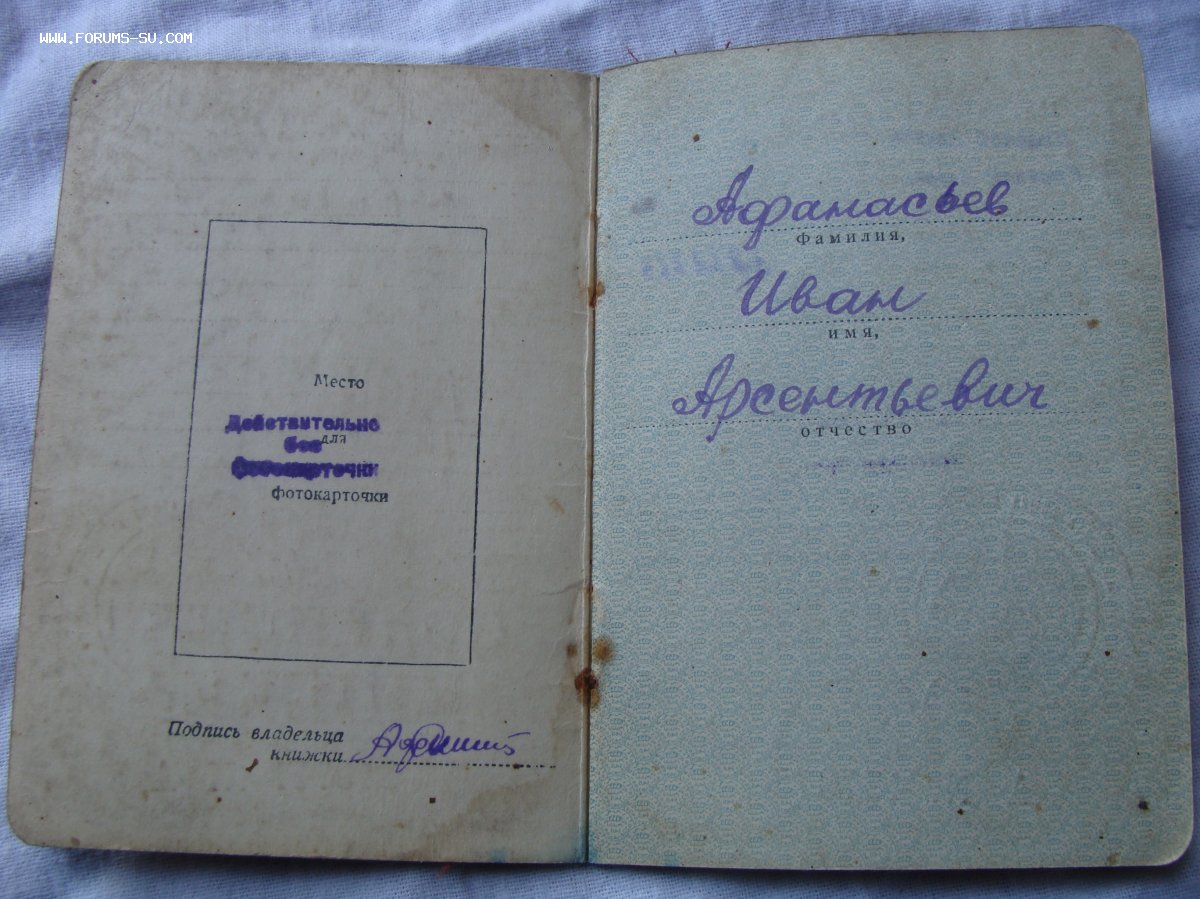 WWW.FORUMS-SU.COM
Место
Действительно
без
для
фотокарточки
фотокарточки
Подпись владельца
книжки
Афанасьев
Фамилия,
Иван
имя,
Арсентьевич
отчество